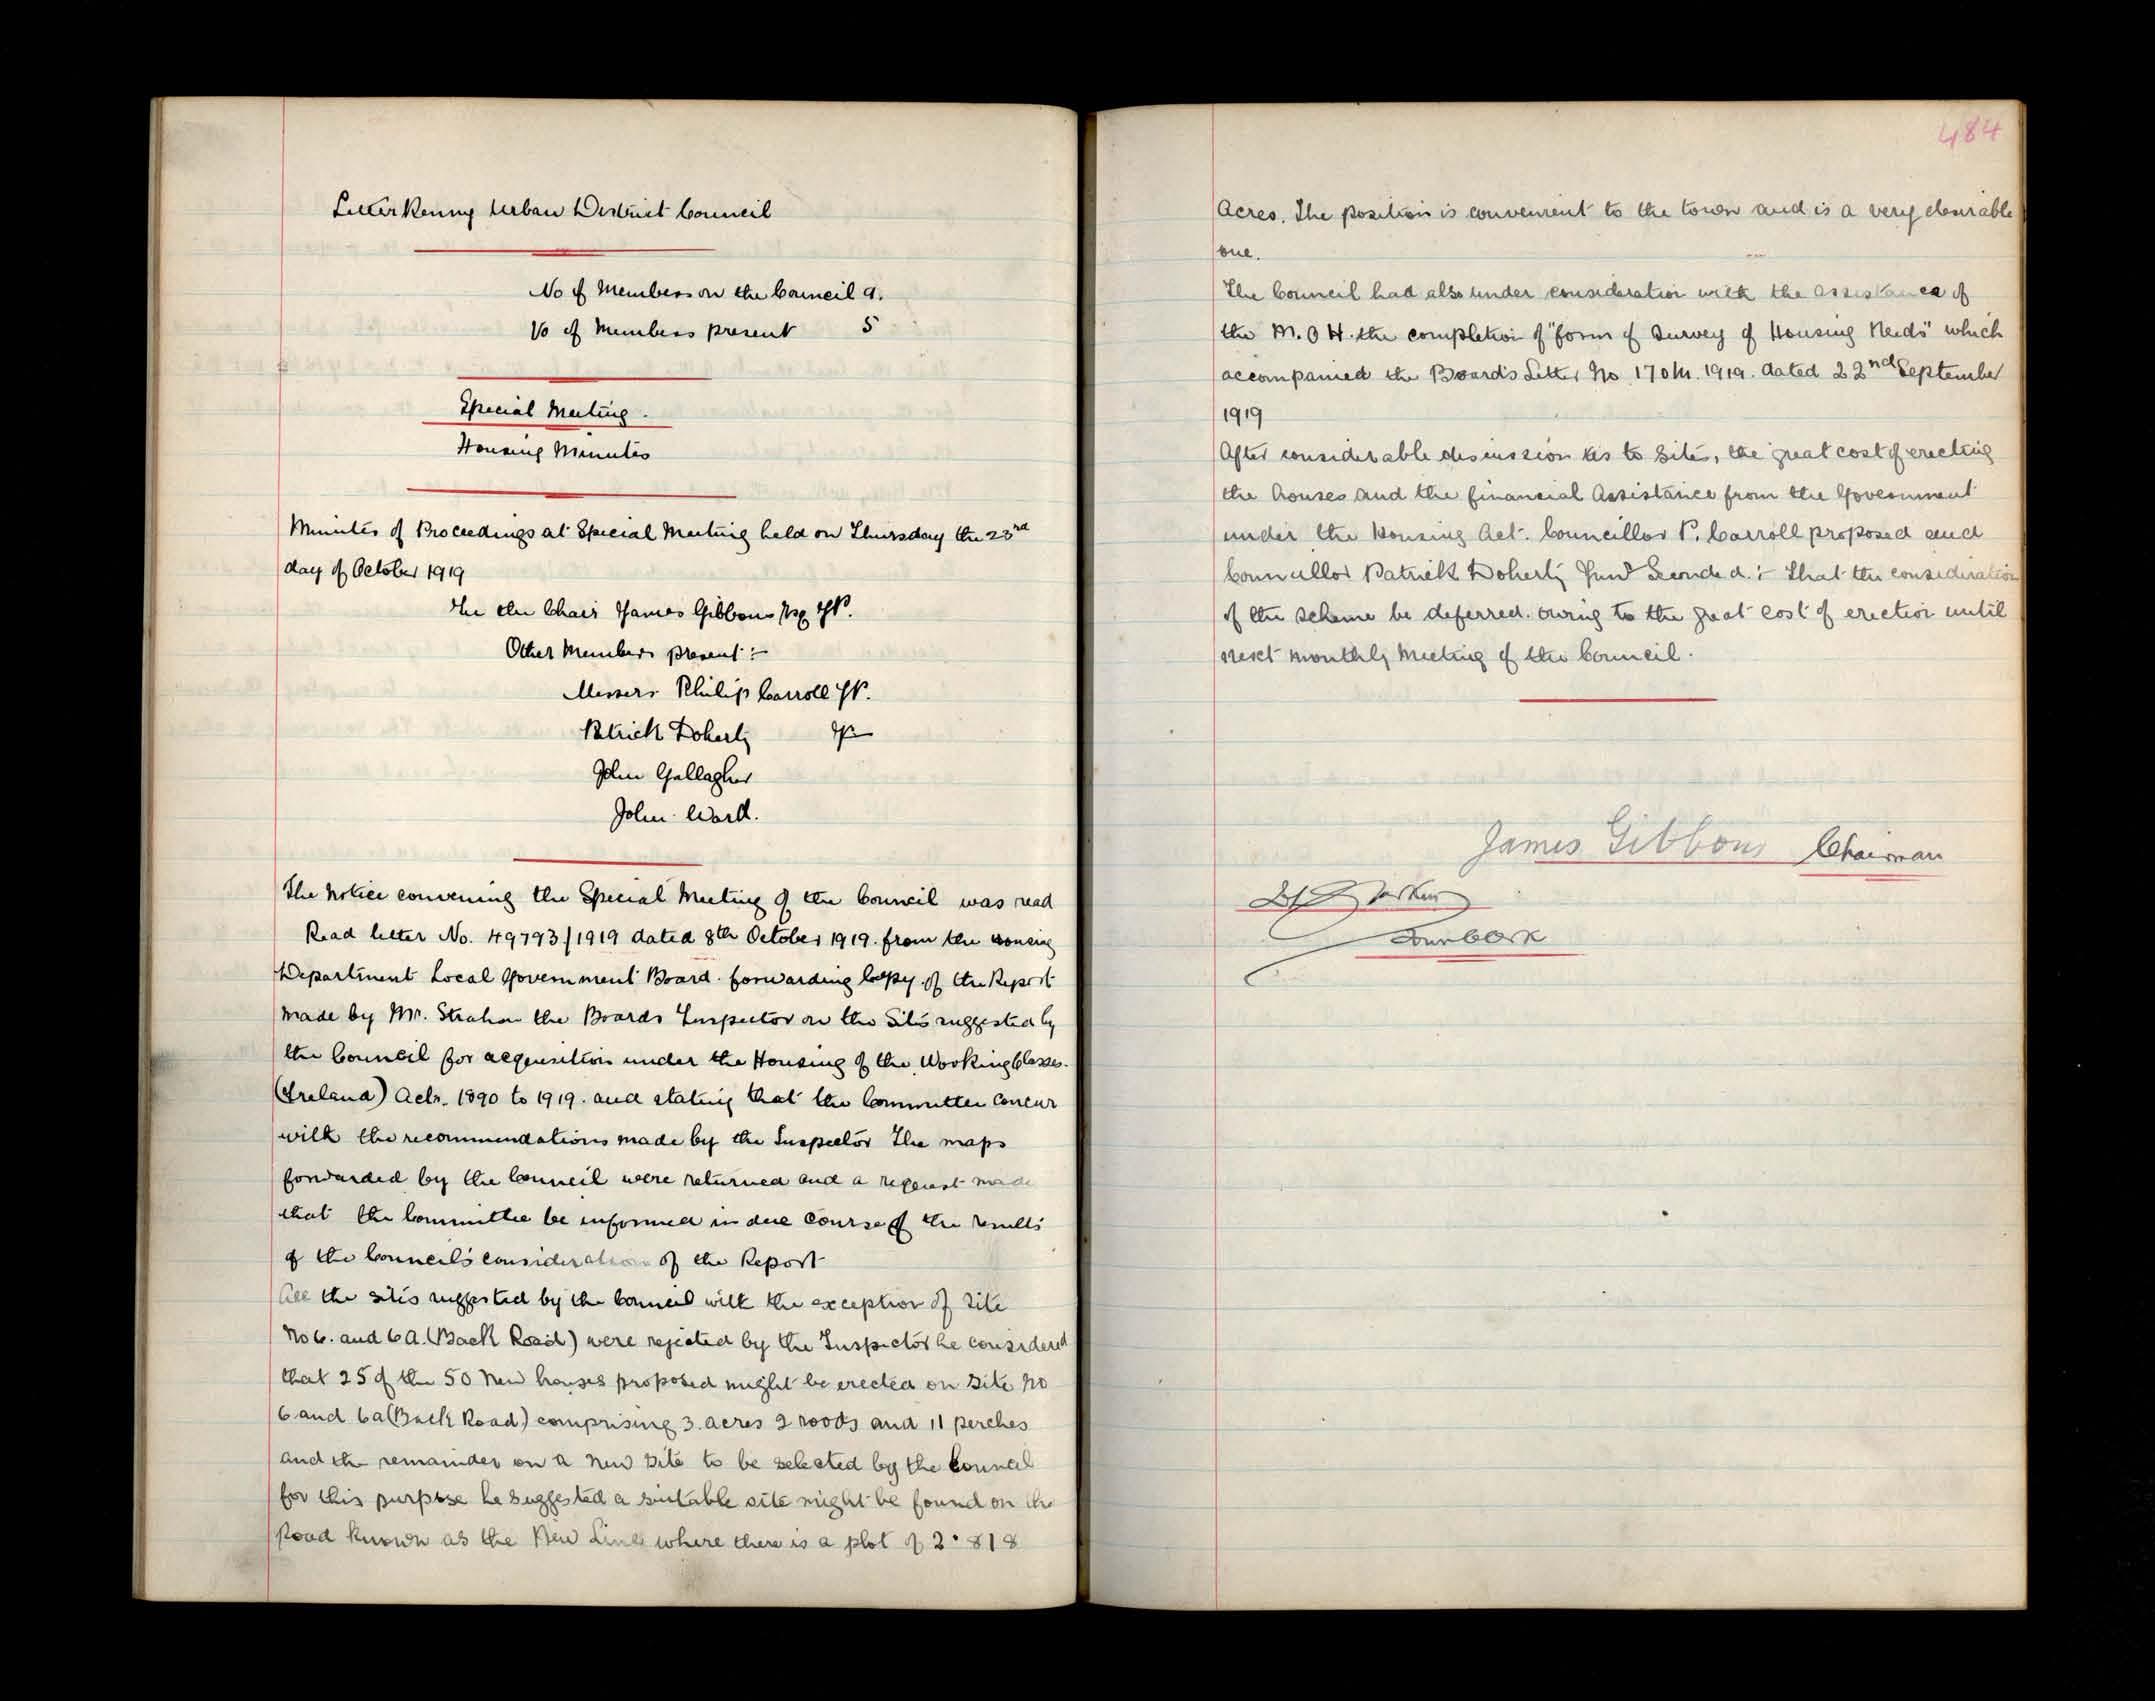 Letterkenny Urban District Council
No of Members on the Council 9.
No of Members present 5
Special Meeting.
Housing Minutes
Minutes of Proceedings at Special Meeting held on Thursday the 23rd
day of October 1919
In the Chair James Gibbons Esq JP.
Other Members present :-
Messers Philip Carroll JP.
Patrick Doherty Jr
John Gallagher
John Ward.
The Notice convening the Special Meeting of the Council was read
Read letter No. 49793/1919 dated 8th October 1919. from the Housing
Department Local Government Board. forwarding Copy of the Report
made by Mr. Strahan the Boards Inspector on the Sites suggested by
the Council for acquisition under the Housing of the Working Classes.
(Ireland) Acts. 1890 to 1919. and stating that the Committee concur
with the recommendations made by the Inspector The maps
forwarded by the Council were returned and a request made
that the Committee be informed in due course of the results
of the Council's consideration of the Report
All the sites suggested by the Council with the exception of Site
No 6. and 6A. (Back Road) were rejected by the Inspector he considered
that 25 of the 50 New houses proposed might be erected on Site No
6 and 6a (Back Road) comprising 3. acres 2 roods and 11 perches
and the remainder on a New Site to be selected by the Council
for this purpose he suggested a suitable site might be found on the
Road known as the New Line where there is a plot of 2.818
484
Acres. The position is convenient to the town and is a very desirable
one.
The Council had also under consideration with the assistance of
the M.O H. the completion of "form of Survey of Housing Needs" which
accompanied the Board's Letter No 170M. 1919. dated 22nd September
1919
After considerable discussion as to Sites, the great cost of erecting
the houses and the financial Assistance from the Government
under the Housing Act. Councillor P. Carroll proposed and
Councillor Patrick Doherty Junr Seconded :- That the consideration
of the scheme be deferred. owing to the great cost of erection until
next monthly Meeting of the Council.
James Gibbons Chairman
Town Clerk